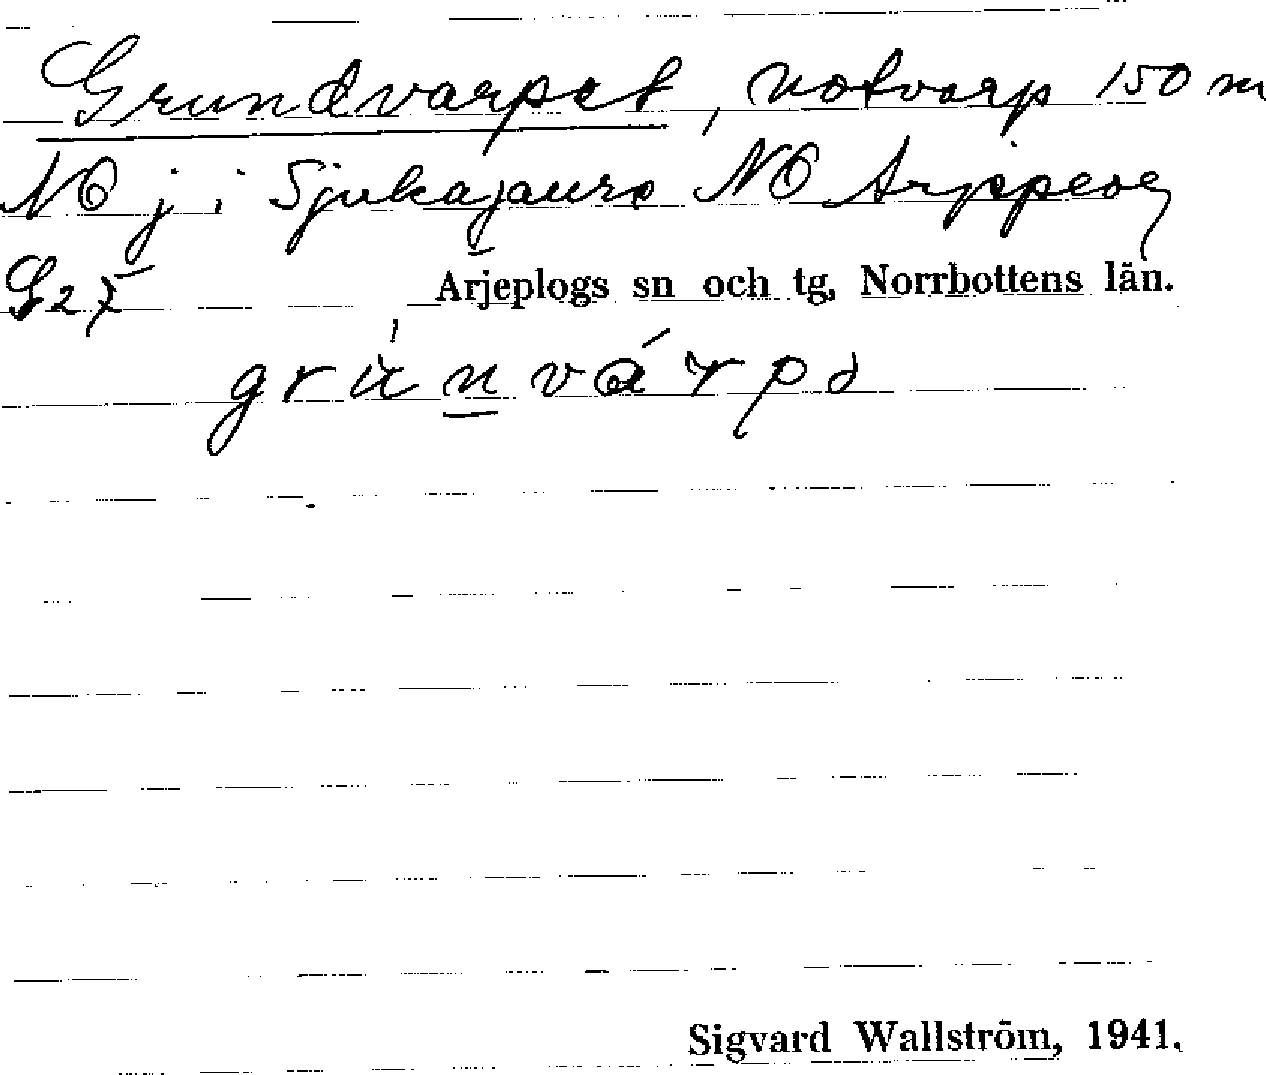 Grundvarpet, notvarp 150 m
NO j i Sjukajaure NO Arjepeog
G2I
Arjeplogs sn och tg, Norrbottens län.
grùn̲várpə
Sigvard Wallström, 1941.